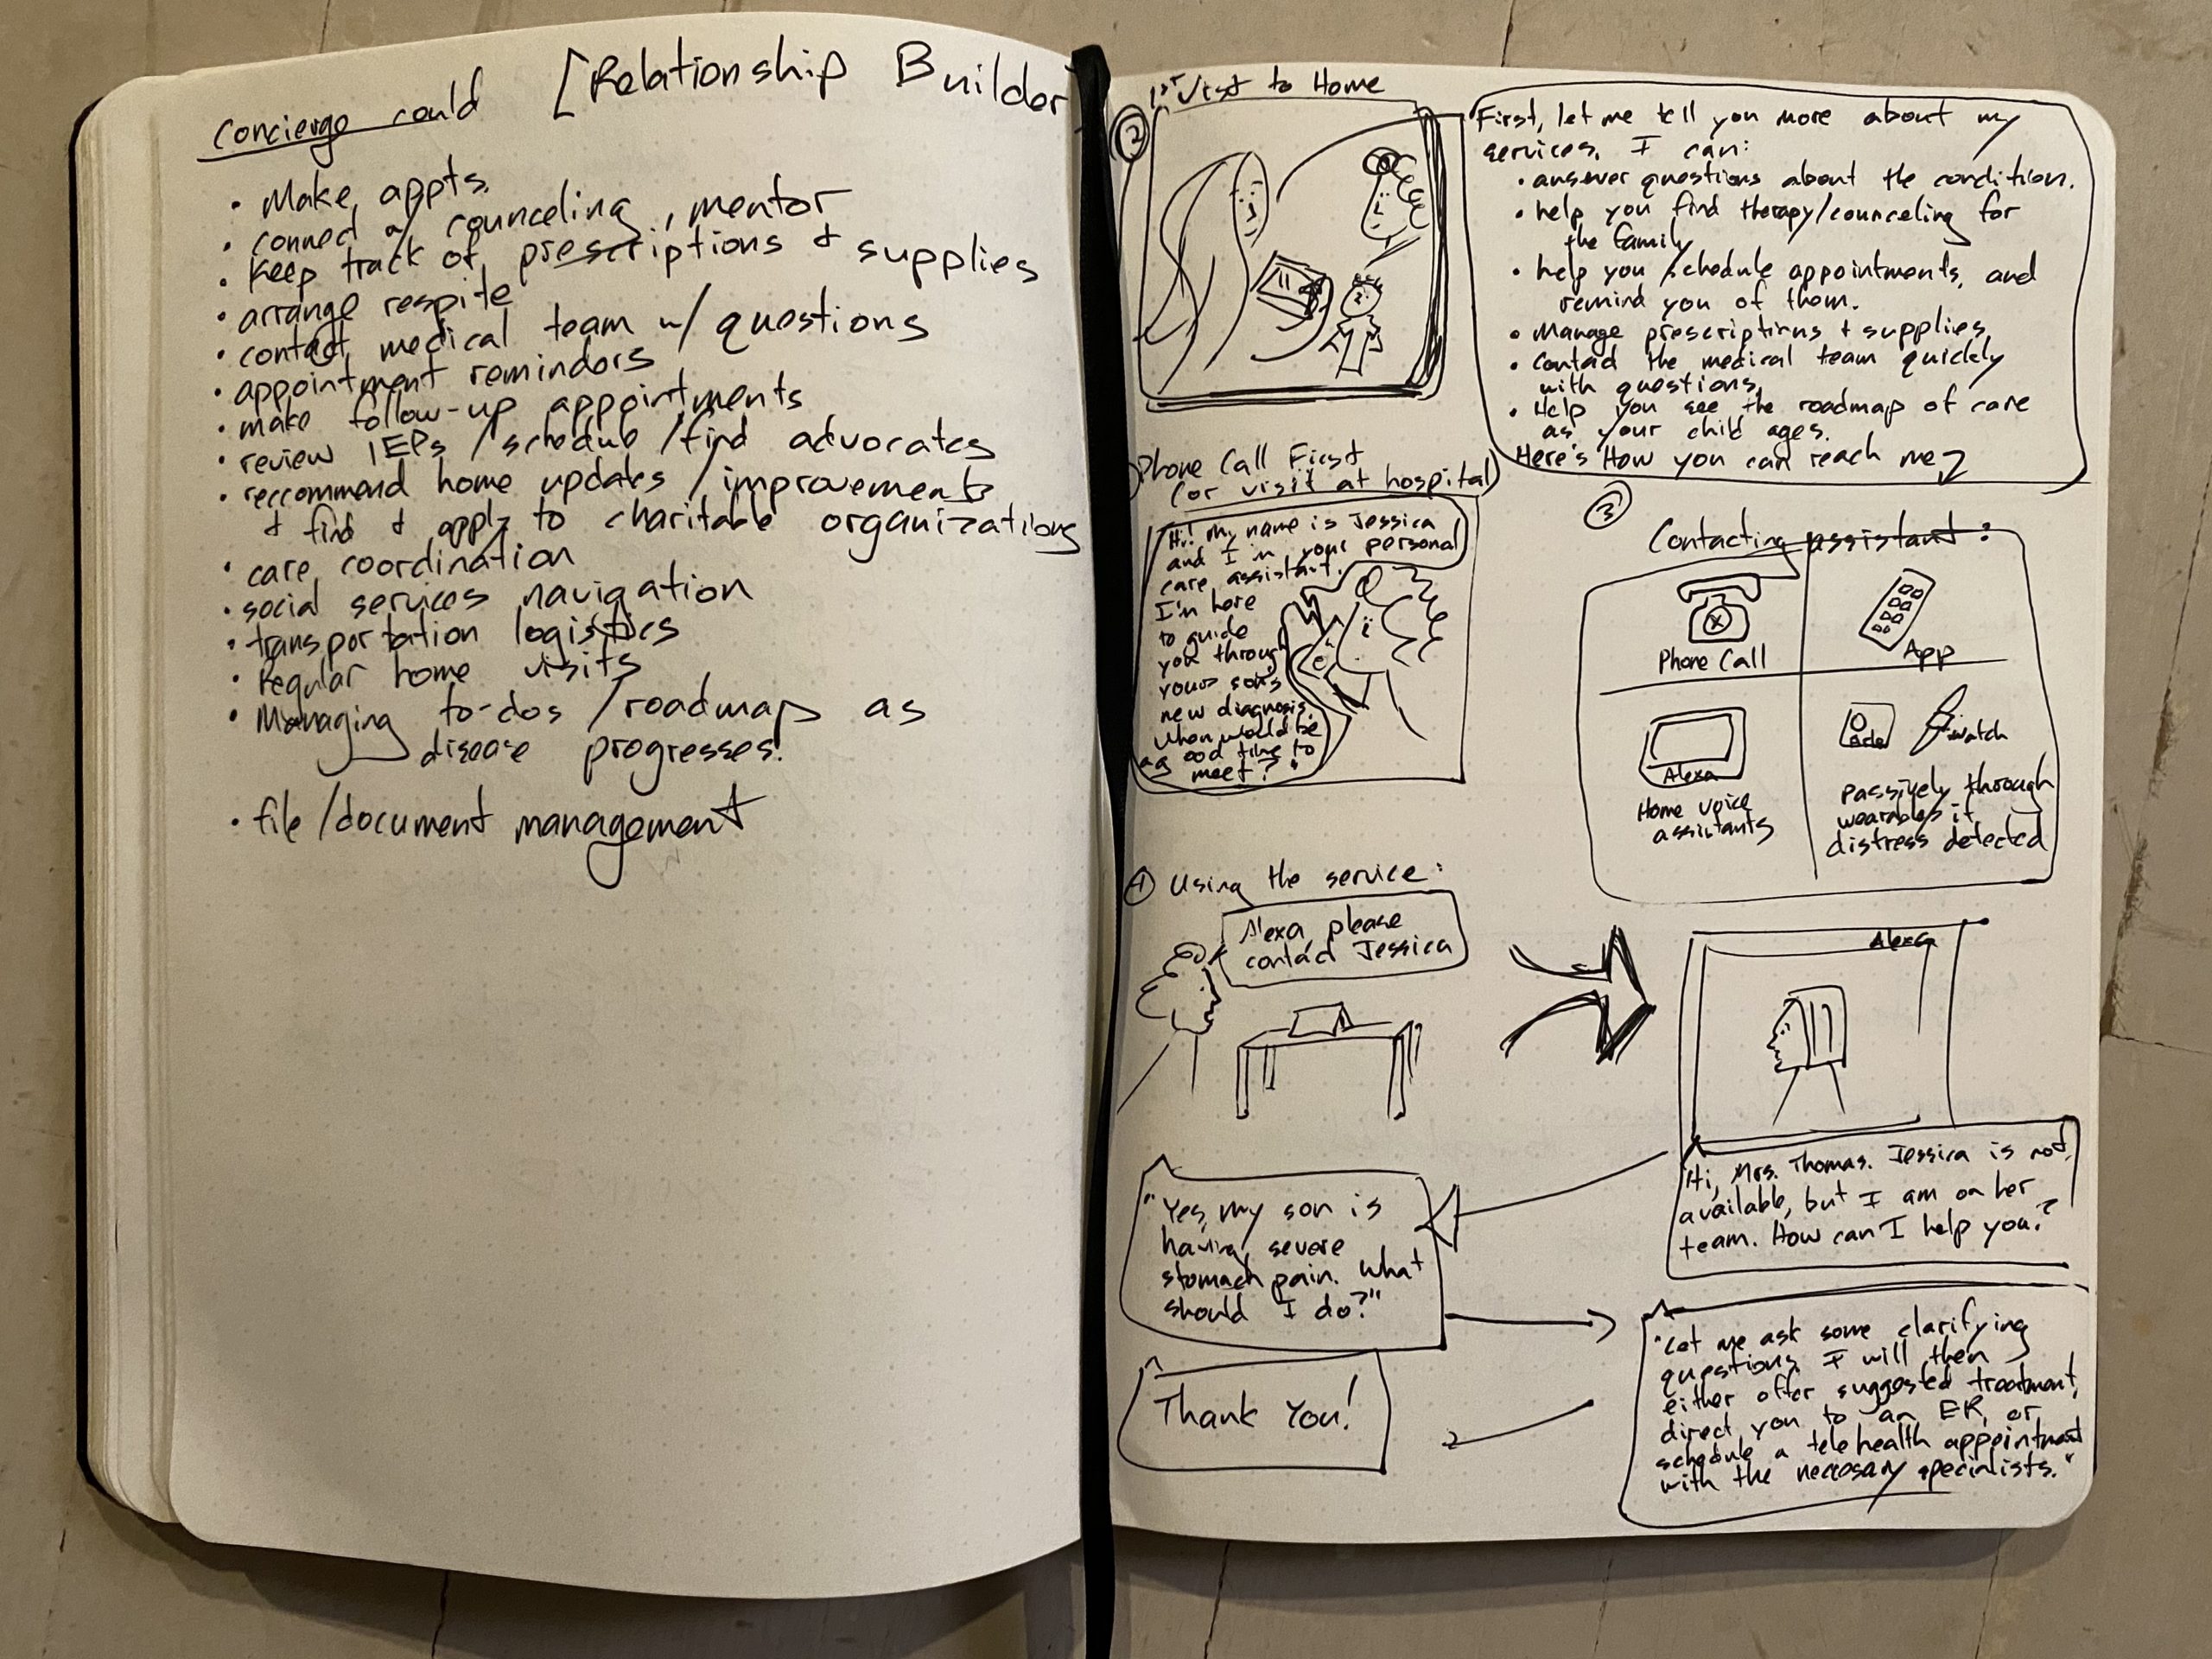 Concierge could [Relationship Builder]
• Make appts.
• connect w/ counceling, mentor
• keep track of prescriptions + supplies
• arrange respite
• contact medical team w/ questions
• appointment remindors
• make follow-up appointments
• review IEPs /schedule /find advocates
• reccommend home updates /improvements
+ find + apply to charitable organizations
• care coordination
• social services navigation
• transportation logistics
• Regular home visits
• Managing to-dos /roadmap as
disease progresses.
• file/document management
② 1st Visit to Home
First, let me tell you more about my
services. I can:
• answer questions about the condition.
• help you find therapy/counceling for
the family
• help you schedule appointments, and
remind you of them.
• Manage prescriptions + supplies
• Contact the medical team quickly
with questions,
• Help you see the roadmap of care
as your child ages.
Here's How you can reach me
Phone Call First
(or visit at hospital)
Hi! My name is Jessica
and I'm your personal
care assistant.
I'm here
to guide
you through
your son's
new diagnosis.
When would be
a good time to
meet?
③
Contacting assistant:
Phone Call
App
Alexa
Home voice
assistants
watch
passively through
wearables if
distress detected
④ Using the service:
Alexa please
contact Jessica
Alexa
Hi, Mrs. Thomas. Jessica is not
available, but I am on her
team. How can I help you?
"Yes, my son is
having severe
stomach pain. What
should I do?"
"Let me ask some clarifying
questions. I will then
either offer suggested treatment,
direct you to an ER, or
schedule a telehealth appointment
with the necessary specialists."
Thank You!